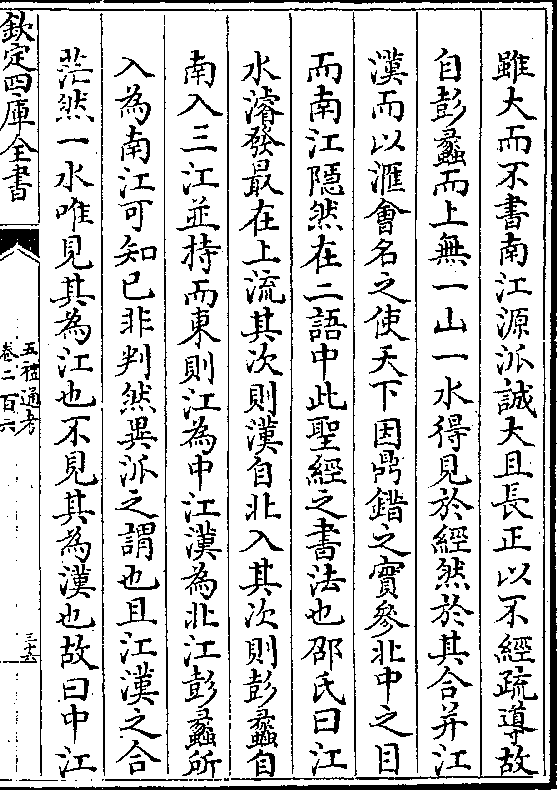 雖大而不書南江源泒誠大且長正以不經疏導故
自彭蠡而上無一山一水得見於經然於其合并江
漢而以滙會名之使天下因鼎錯之實參北中之目
而南江隱然在二語中此聖經之書法也邵氏曰江
水濬發最在上流其次則漢自北入其次則彭蠡自
南入三江並持而東則江為中江漢為北江彭蠡所
入為南江可知已非判然異泒之謂也且江漢之合
茫然一水唯見其為江也不見其為漢也故曰中江
欽定四庫全書
五禮通考
卷二百六
三十六